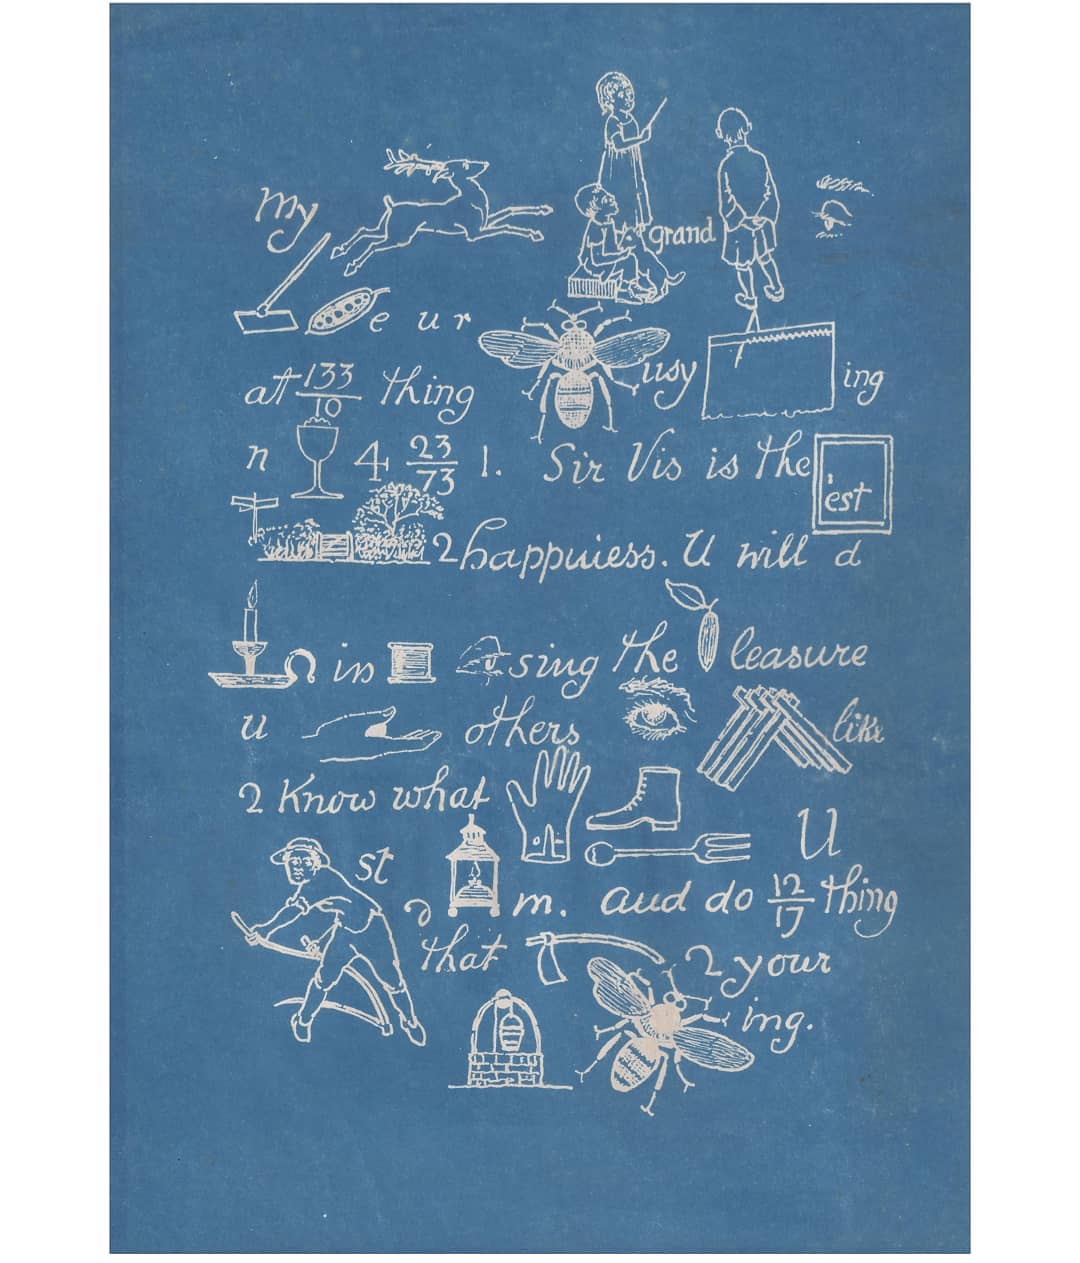 my
grand
e u r
usy
at 133/10 thing
ing
n 4 23/73 1. Sir Vis is the 'est
2 happiness. U will d
in sing the leasure
u others like
2 Know what U
st m. and do 12/17 thing
that 2 your
ing.